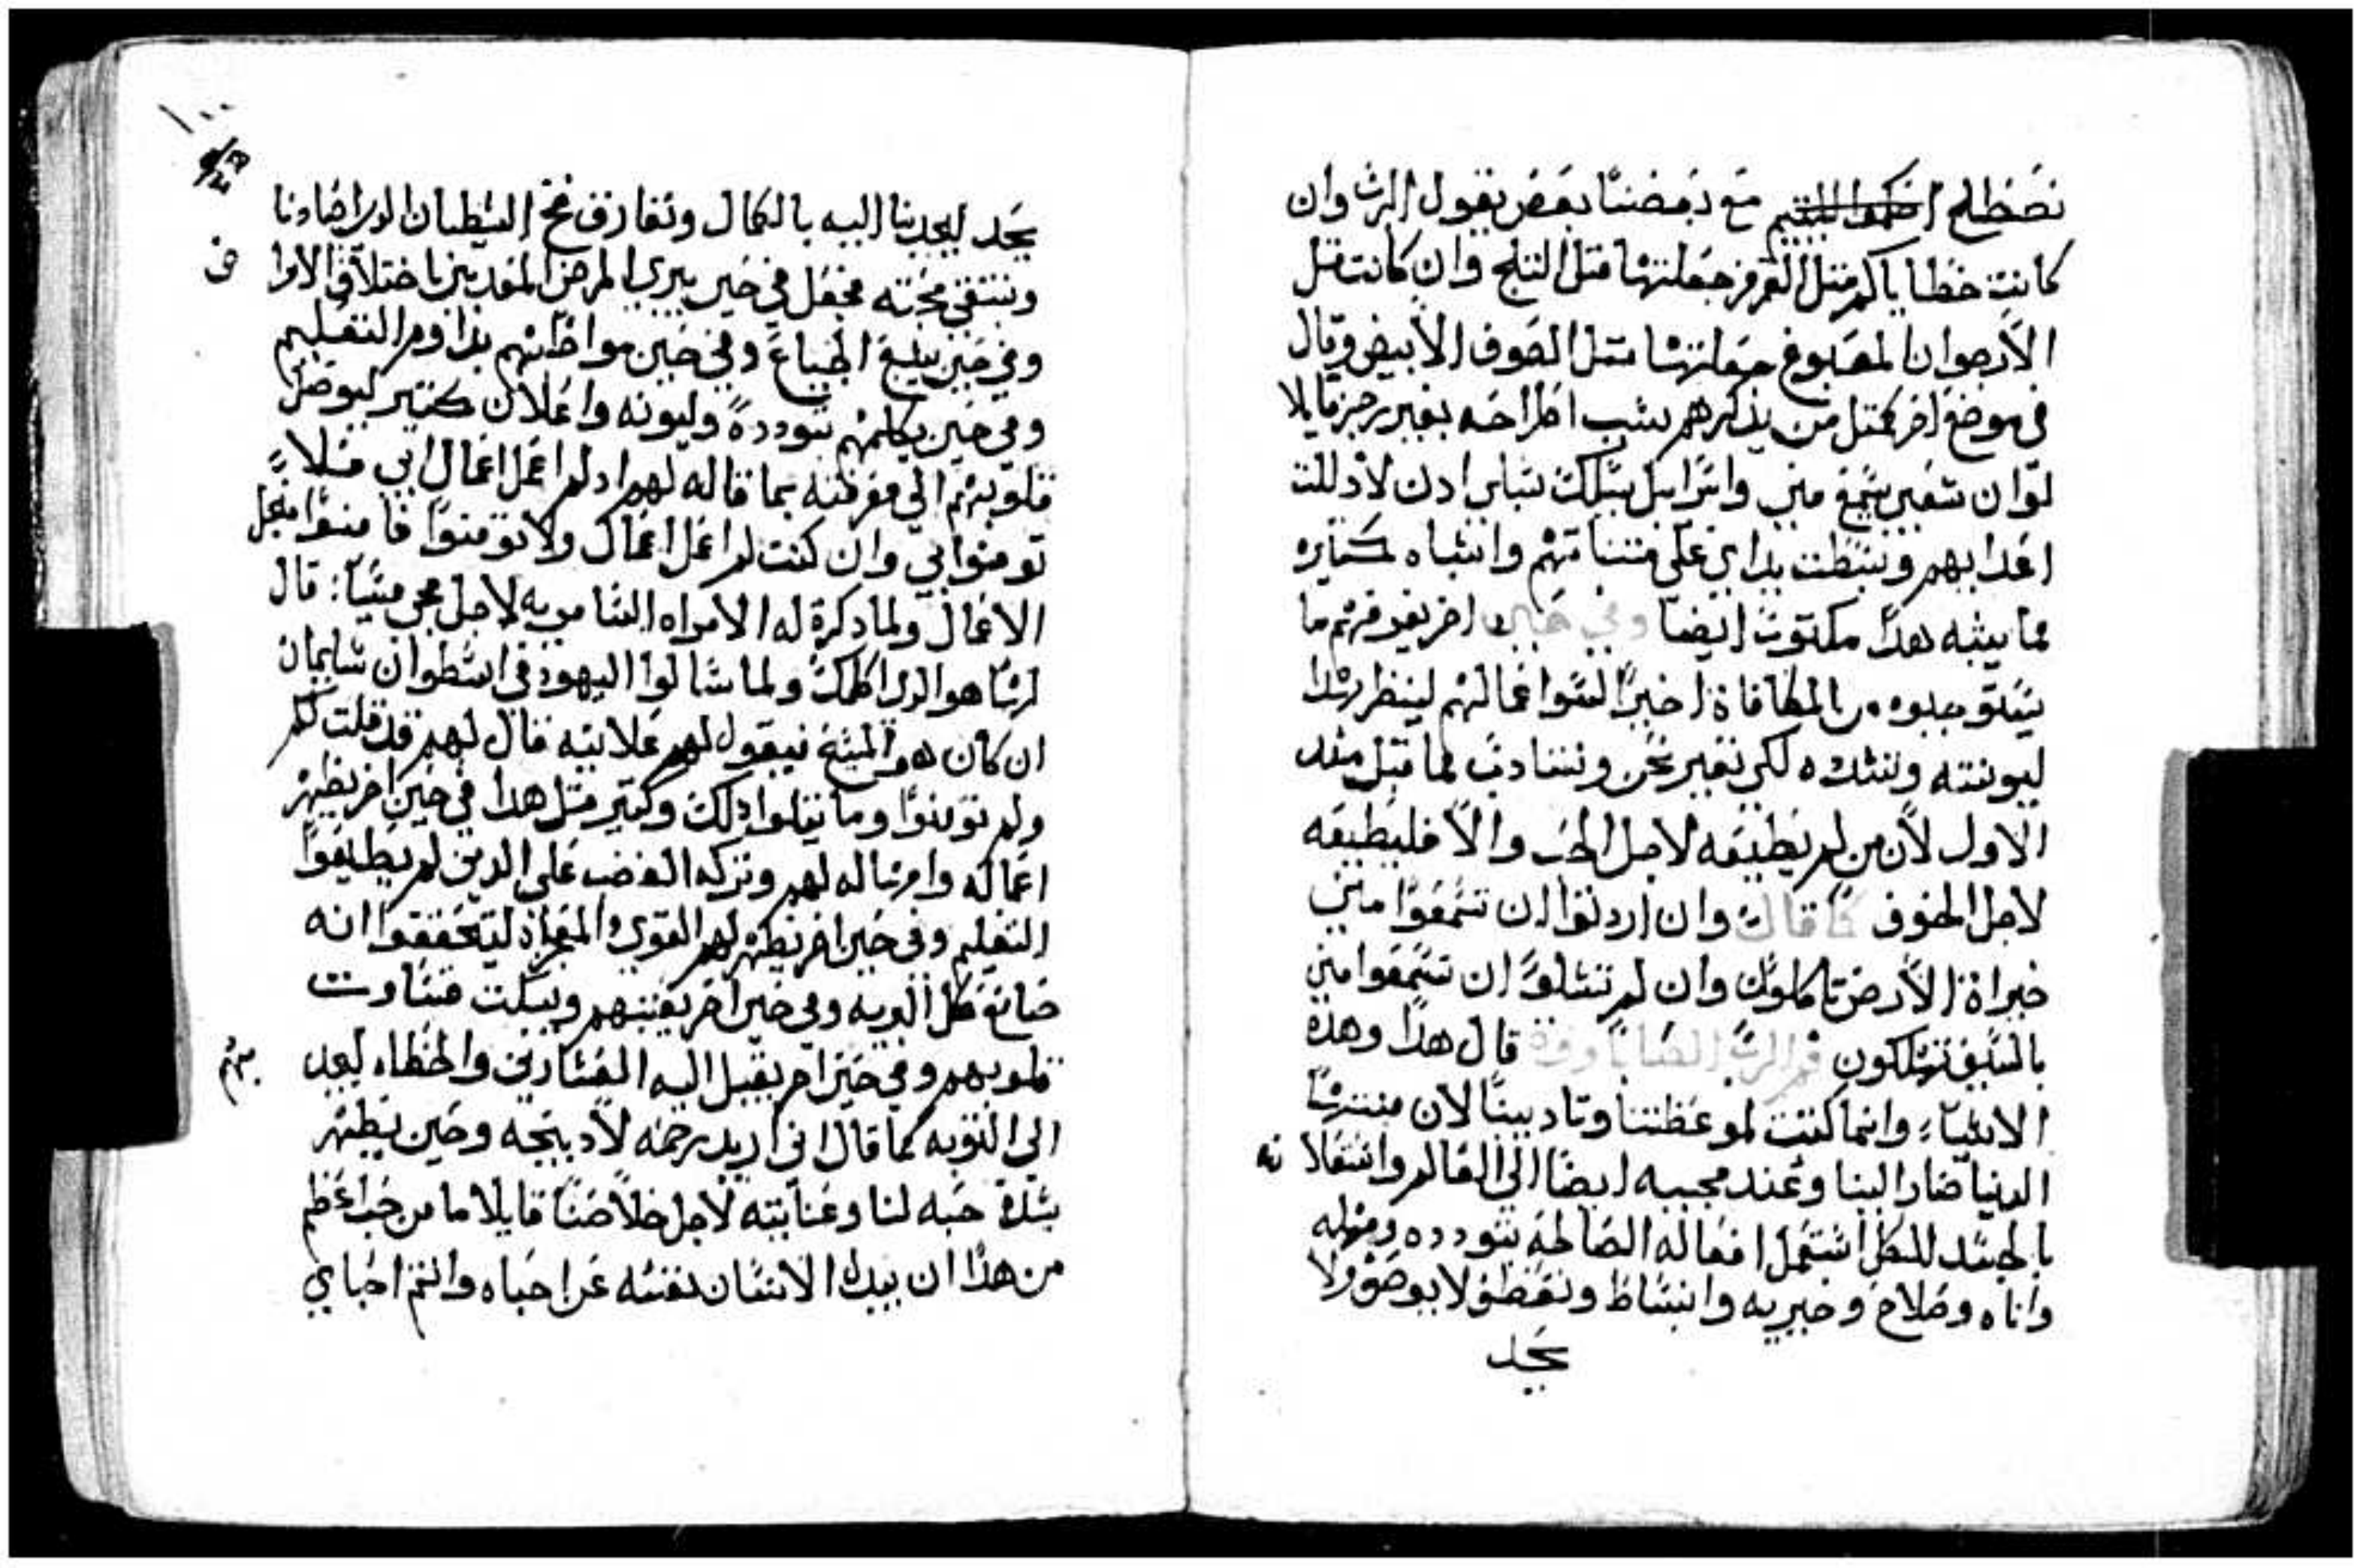 نصطلح مع بعضنا بعض يقول الرب وان
كانت خطاياكم مثل القرمز جعلتها مثل التلج وان كانت مثل
الارجوان المصبوغ جعلتها مثل الصوف الابيض وقال
في موضع اخر كمتل من يذكرهم بسبب اطراحه بغير رجز قايلا
لو ان شعبي سمع مني واسراييل سلك سبلي ادن لاذللت
اعدايهم وبسطت يداي على مشناتهم واشباه كتيره
مما يشبه هدا مكتوب ايضا وفي حين اخر يفزعهم بما
يستوجبوه من المكافاة اخيرا لسوا عمالهم لينظر بهدا
ليونته وشده لكي نغير نحن ونتادب لما قبل منه
الاول لان من لم يطيعه لاجل الحب والا فليطيعه
لاجل الخوف كما قال وان اردتوا ان تسمعوا مني
خيراة الارض تاكلون وان لم تشاوا ان تسمعوا مني
بالسيف تهلكون فم الرب قال هدا وهده
الاشياء وانما كتبت لموعظتنا وتاديبنا لان منتها
الدنيا صار الينا وعند مجييه ايضا الى العالم وانتقاله
بالجسد للكل استعمل افعاله الصالحه بتودده ومهله
واناه وصلاح وخيريه وانبساط وتعطف لا يوصف ولا
يحد
يحد ليجدبنا اليه بالكمال ونفارق فخ الشيطان الدي اصادنا
ونتقي محبته فجعل في حين يبري المرضى المعدبين باختلاف الاوا
في
وفي حين يشبع الجياع وفي حين مواظبتهم بداومر التعليم
وفي حين يكلمهم بتودده وليونه واعلان كتير ليوصل
قلوبهم الي معرفته بما قاله لهم اد لم اعمل اعمال ابي فلا
تومنوا بي وان كنت لم اعمل اعمال ولا تومنوا فامنوا من اجل
الاعمال ولما دكرة له الامراه السامريه لاجل مجي مسيا: قال
لها هو الدي اكلمك ولما سالوا اليهود في اسطوان سليمان
ان كان هو المسيح فيقول لهم علانيه قال لهم قد قلت لكم
ولم تومنوا وما يتلوا دلك وكتير متل هدا في حين اخر يظهر
اعماله وارساله لهم وتركه الغضب على الدين لم يطيعوا
التعليم وفي حين اخر يظهر لهم القوي والمعجزاة ليتحققوا انه
صانع كل البريه وفي حين اخر يفتنهم ويبكت قساوت
قلوبهم وفي حين اخر يقبل اليه العشارين والخطاه ليعد
بهم
الي التوبه كما قال اني اريد رحمه لا دبيحه وحين يظهر
بشدة حبه لنا وعنايته لاجل خلاصنا قايلا ما من حب اعظم
من هدا ان يبدل الانسان نفسه عن احباه وانتم احباي